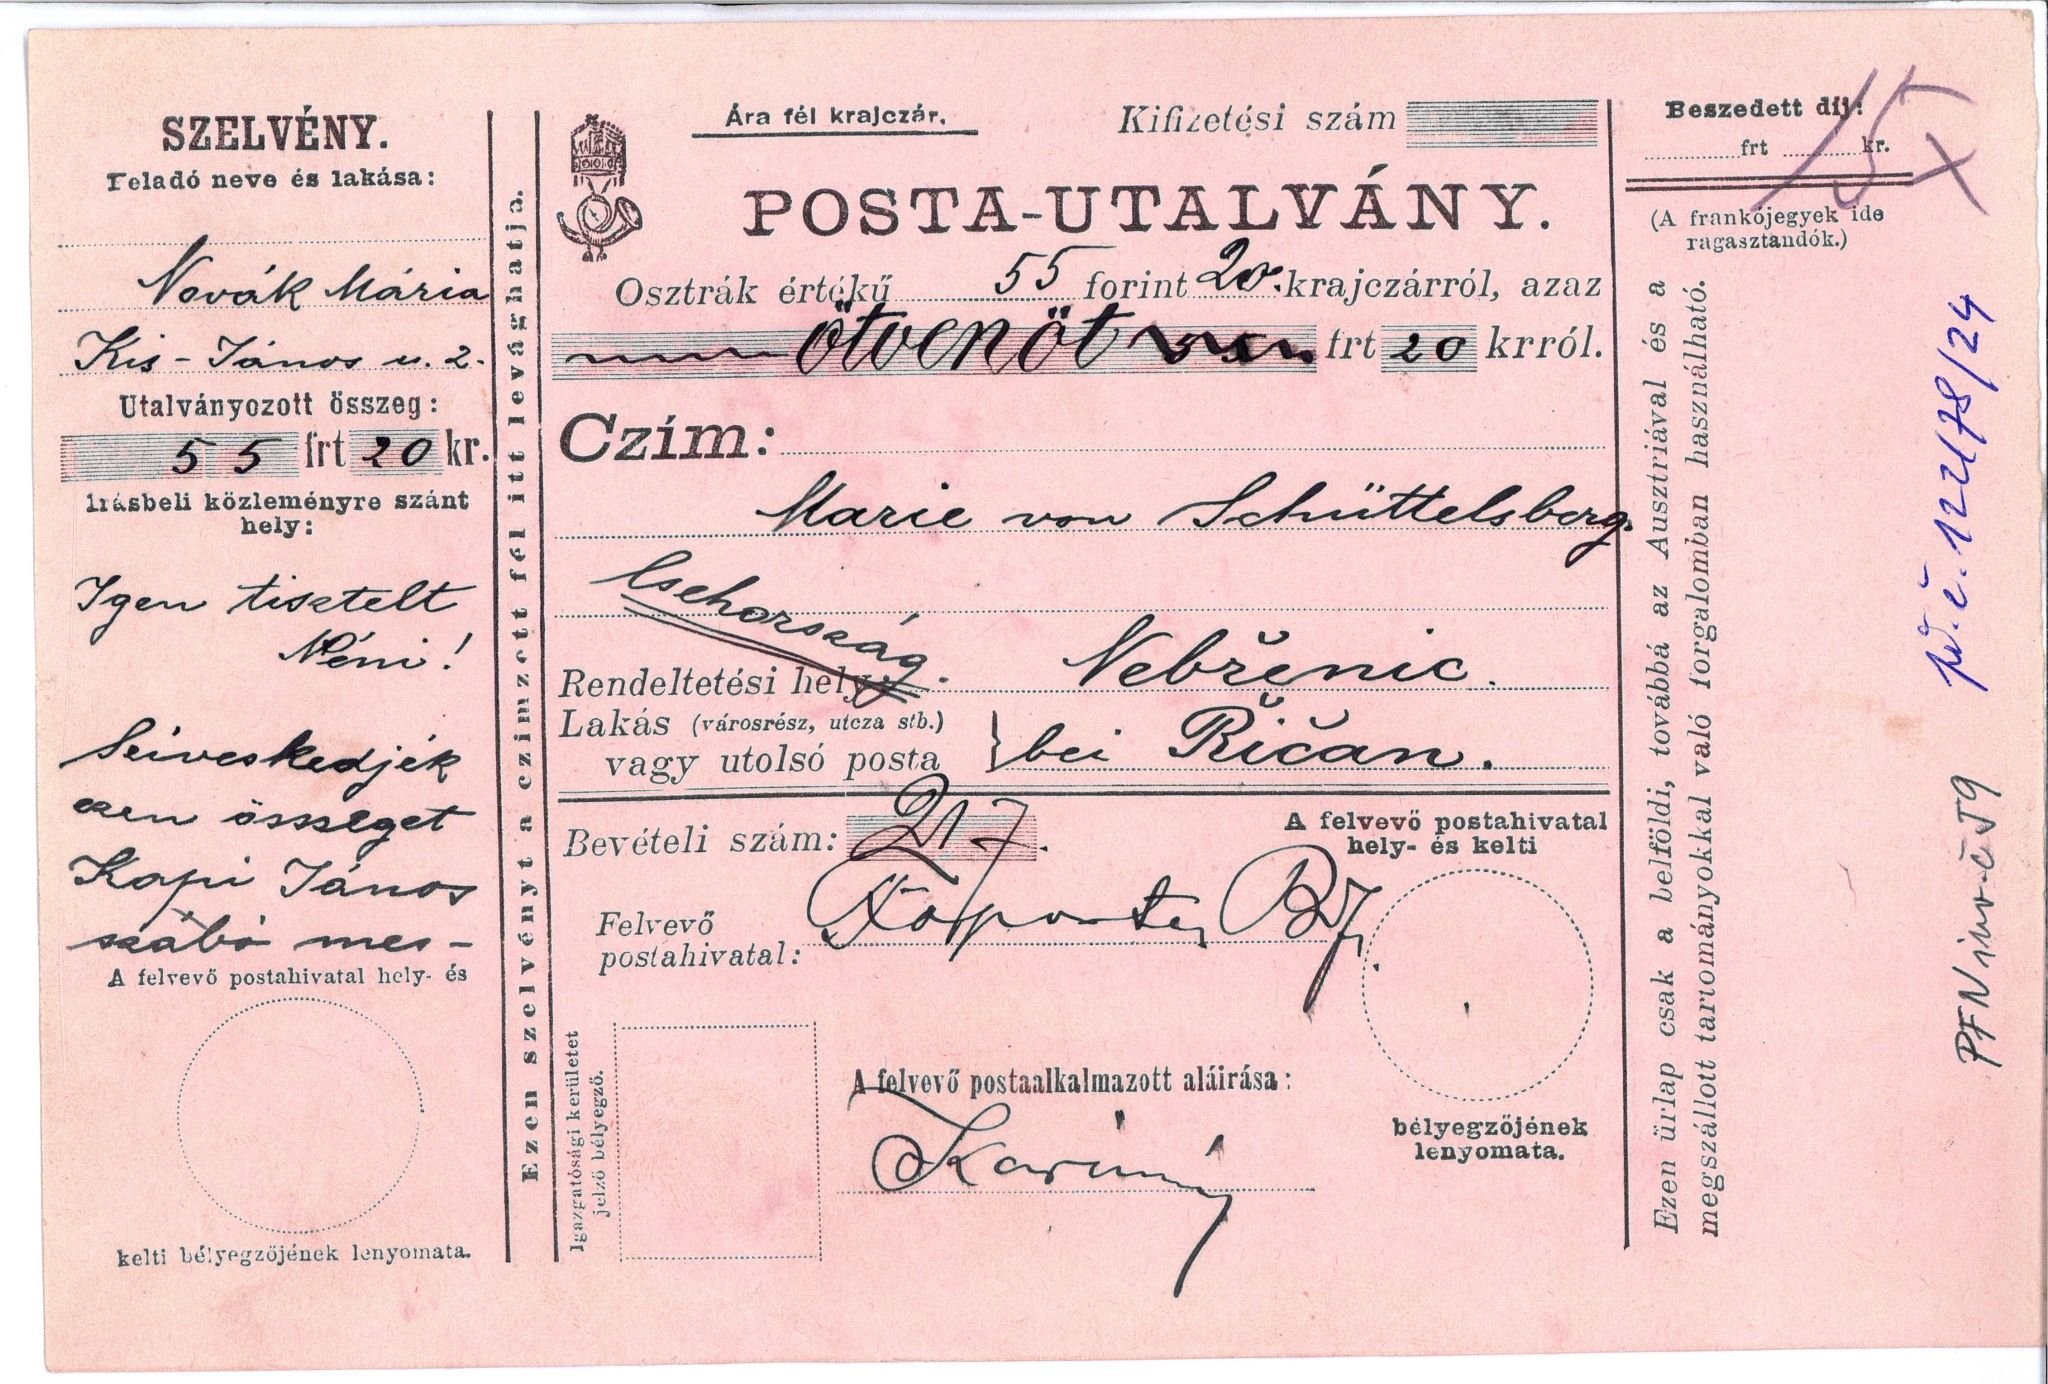 SZELVÉNY.
Feladó neve és lakása:
Novák Mária
Kis-János u. 2.
Utalványozott összeg:
55 frt 20 kr.
Irásbeli közleményre szánt
hely:
Igen tisztelt
Néni!
Seiveskedjék
ezen össseget
Kapi János
szabó mes-
A felvevő postahivatal hely- és
kelti bélyegzőjének lenyomata.
Ezen szelvényt a czimzett fél itt levághatja.
Ára fél krajczár.
Kifizetési szám
POSTA-UTALVÁNY.
Osztrák értékű 55 forint 20. krajczárról, azaz
ötvenöt frt 20 krról.
Czím:
Marie von Schüttelsberg.
Csehország.
Rendeltetési hely Nebřenic.
Lakás (városrész, utcza stb.)
vagy utolsó posta } bei Řičan.
Bevételi szám: 217.
Felvevő
postahivatal:
A felvevő postahivatal
hely- és kelti
bélyegzőjének
lenyomata.
Igazgatósági kerületet
jelző bélyegző.
A felvevő postaalkalmazott aláirása:
Beszedett dij:
frt kr.
15 x
(A frankójegyek ide
ragasztandók.)
Ezen űrlap csak a belföldi, továbbá az Ausztriával és a
megszállott tartományokkal való forgalomban használható.
př. č. 122/78/24
PFN inv. č. 59